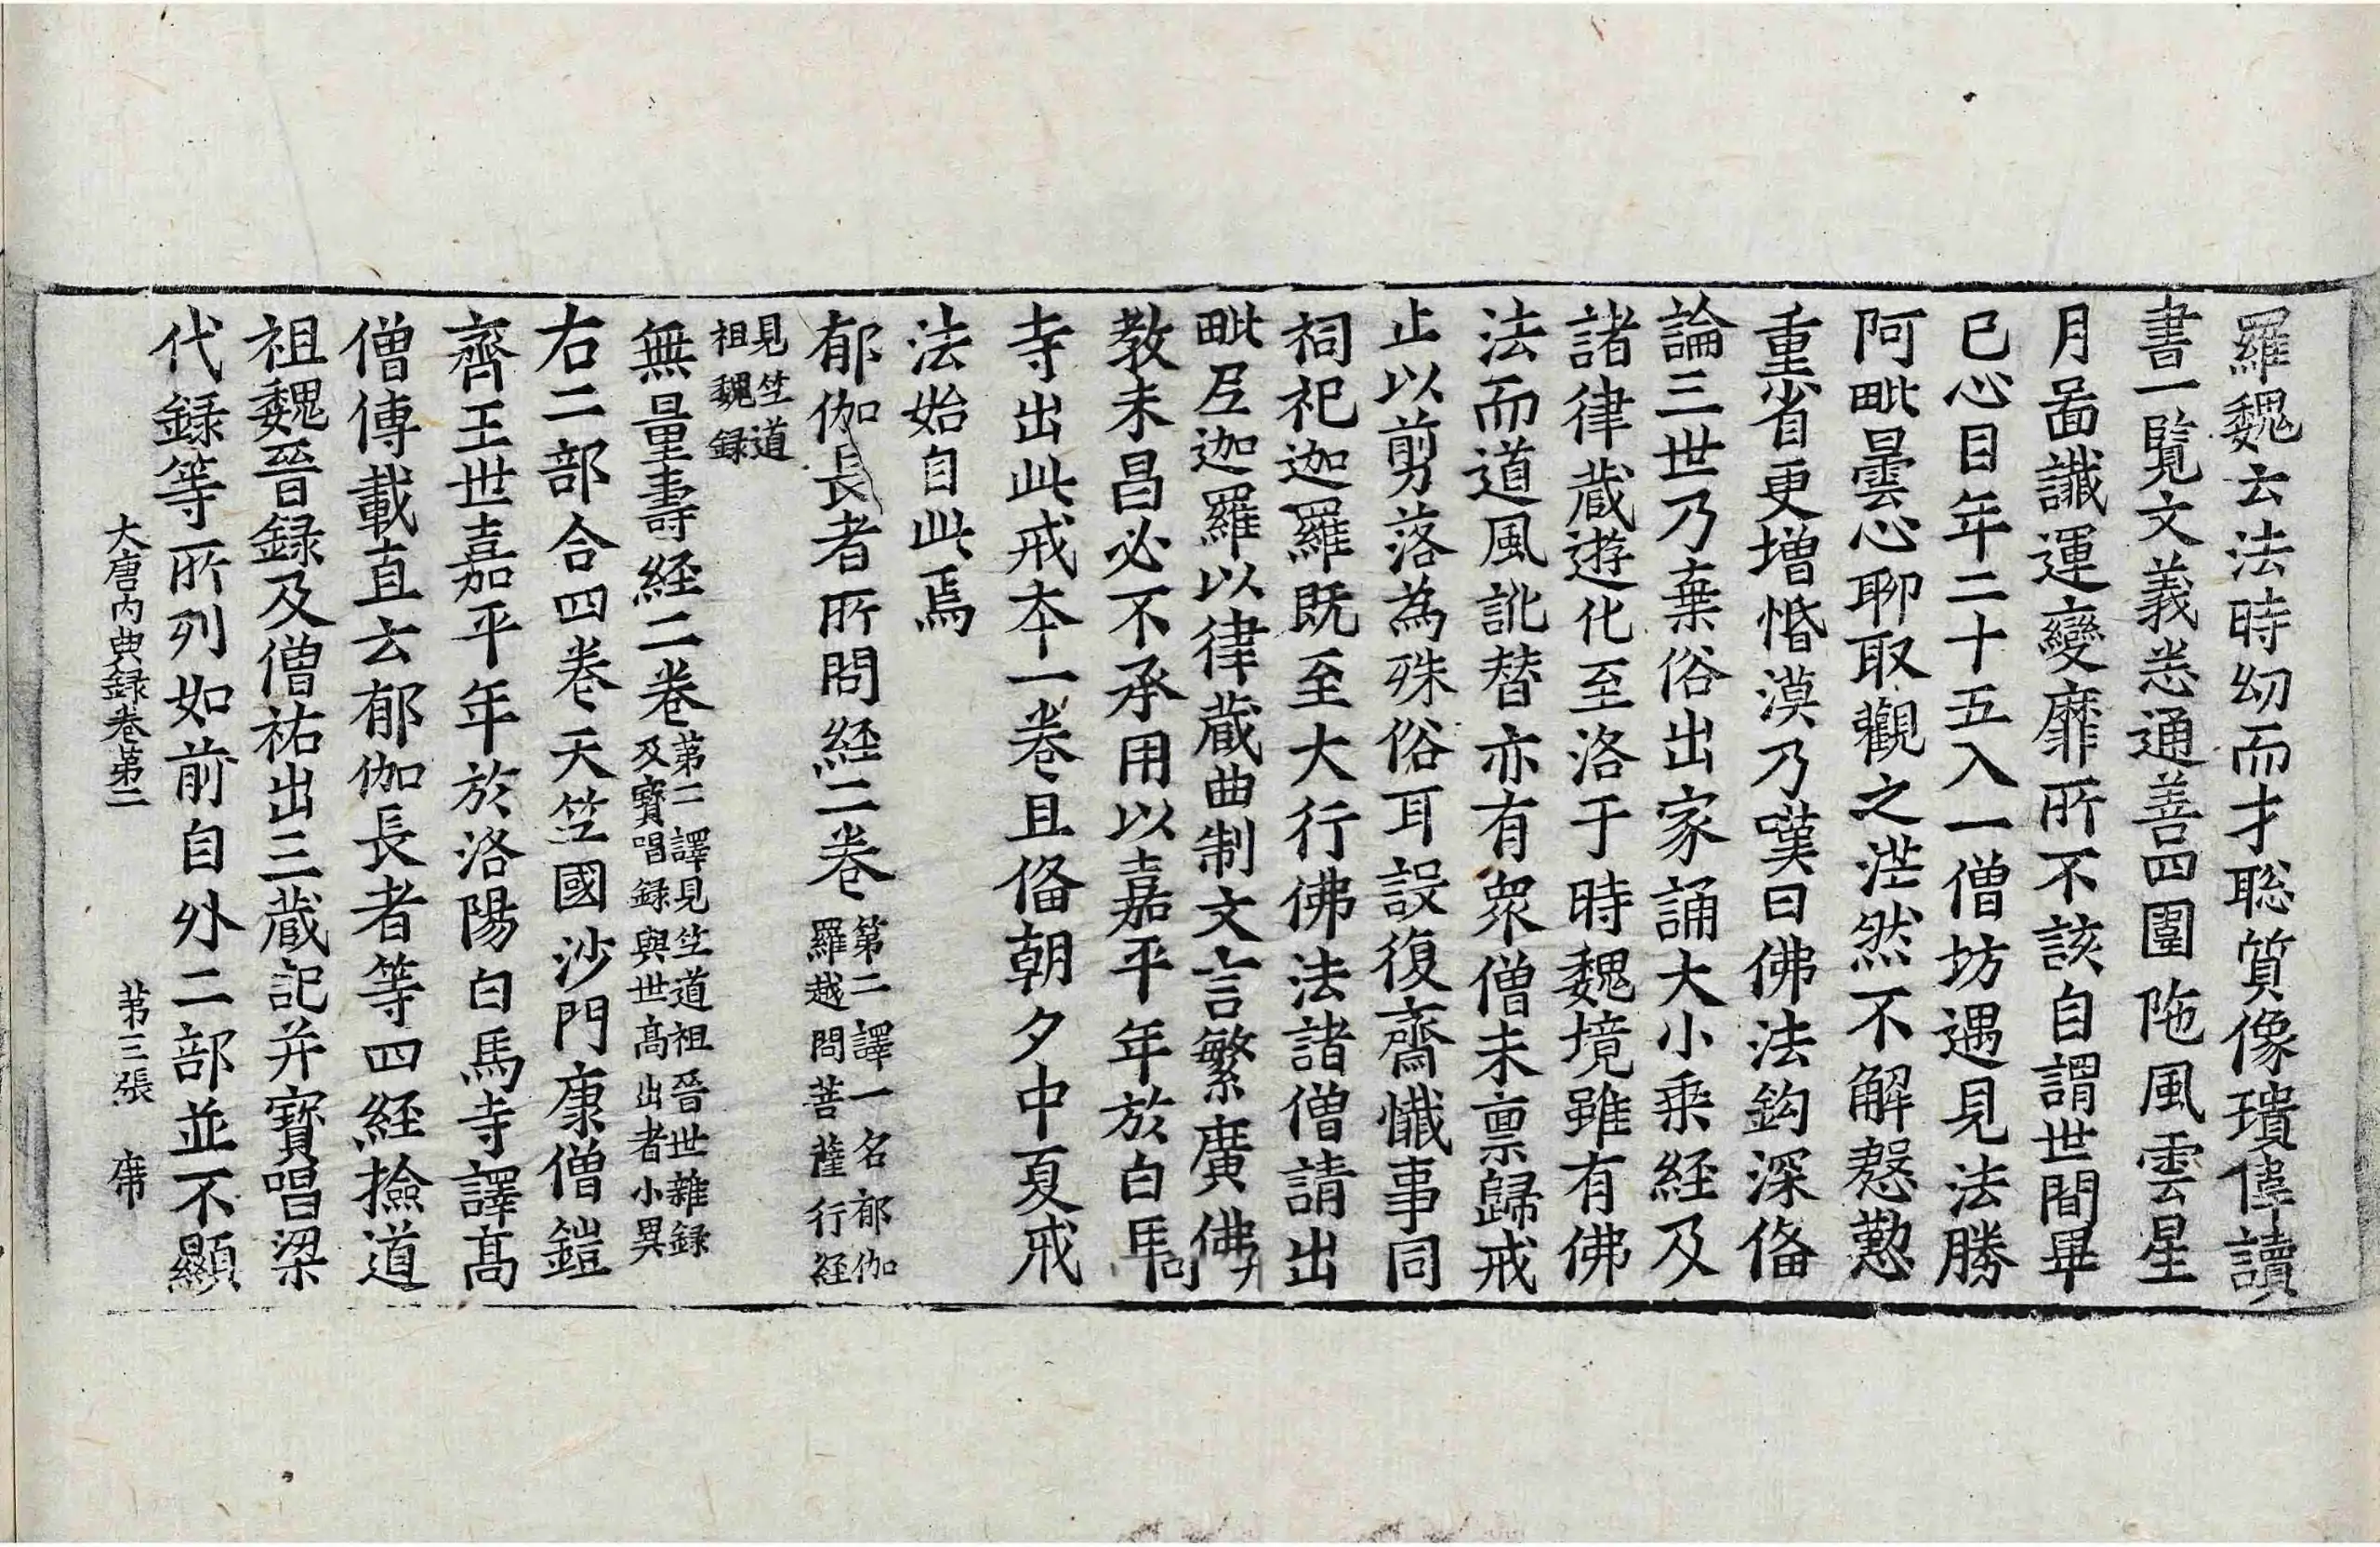 羅魏云法時㓜而才聡質像瓌偉讀
書一覧文義悉通善四圍陁風雲星
月啚讖運變靡所不該自謂世間畢
已心目年二十五入一僧坊遇見法勝
阿毗曇心聊取觀之茫然不解慇懃
重省更增惛漠乃嘆曰佛法鈎深俻
論三世乃棄俗出家誦大小乗経及
諸律蔵遊化至洛于時魏境雖有佛
法而道風訛替亦有衆僧未禀歸戒
止以剪落為殊俗耳設復齋懺事同
祠祀迦羅既至大行佛法諸僧請出
毗𡰱迦羅以律蔵曲制文言繁廣佛
教未昌必不承用以嘉平年於白馬
寺出此戒夲一卷且俻朝夕中夏戒
法始自此焉
郁伽長者所問経二卷第二譯一名郁伽
羅越問菩薩行経
見竺道
祖魏録
無量壽経二卷第二譯見竺道祖晉世雜録
及寶唱録與世高出者小異
右二部合四卷天竺國沙門康僧鎧
齊王世嘉平年於洛陽白馬寺譯髙
僧傳載直云郁伽長者等四経撿道
祖魏晉録及僧祐出三蔵記并寶唱梁
代録等所列如前自外二部並不顯
大唐内典録卷第二　第三張　席